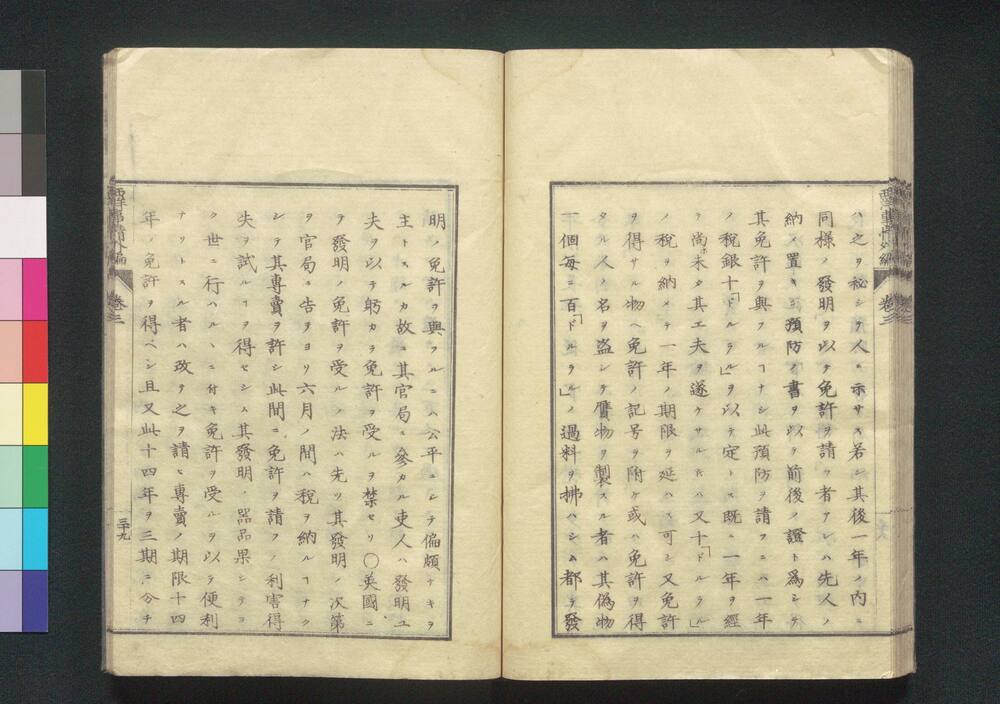 ハ之ヲ秘シテ人ニ示サス若シ其後一年ノ内ニ
同様ノ發明ヲ以テ免許ヲ請フ者アレハ先人ノ
納メ置キシ預防ノ書ヲ以テ前後ノ證ト爲シテ
其免許ヲ與フルヿナシ此預防ヲ請フニハ一年
ノ税銀十「ドルラル」ヲ以テ定トス既ニ一年ヲ經
テ尚ホ未タ其工夫ヲ遂ケサル𪜈ハ又十「ドルラル」
ノ税ヲ納メテ一年ノ期限ヲ延ハス可シ又免許
ヲ得サル物ヘ免許ノ記号ヲ附ケ或ハ免許ヲ得
タル人ノ名ヲ盗ンテ贋物ヲ製スル者ハ其偽物
一個毎ニ百「ドルラル」ノ過料ヲ拂ハシム都テ發
明ノ免許ヲ與フルニハ公平ニシテ偏頗ナキヲ
主トスルカ故ニ其官局ニ參カル吏人ハ發明工
夫ヲ以テ躬カラ免許ヲ受ルヲ禁セリ〇英國ニ
テ發明ノ免許ヲ受ルノ法ハ先ツ其發明ノ次第
ヲ官局ニ告テヨリ六月ノ間ハ税ヲ納ルヿナク
シテ其專賣ヲ許シ此間ニ免許ヲ請フノ利害得
失ヲ試ルヿヲ得セシム其發明ノ器品果シテヨ
ク世ニ行ハルヽニ付キ免許ヲ受ルヲ以テ便利
ナリトスル者ハ改テ之ヲ請ヒ專賣ノ期限十四
年ノ免許ヲ得ベシ且又此十四年ヲ三期ニ分チ
西洋事情外編
卷三
三十九